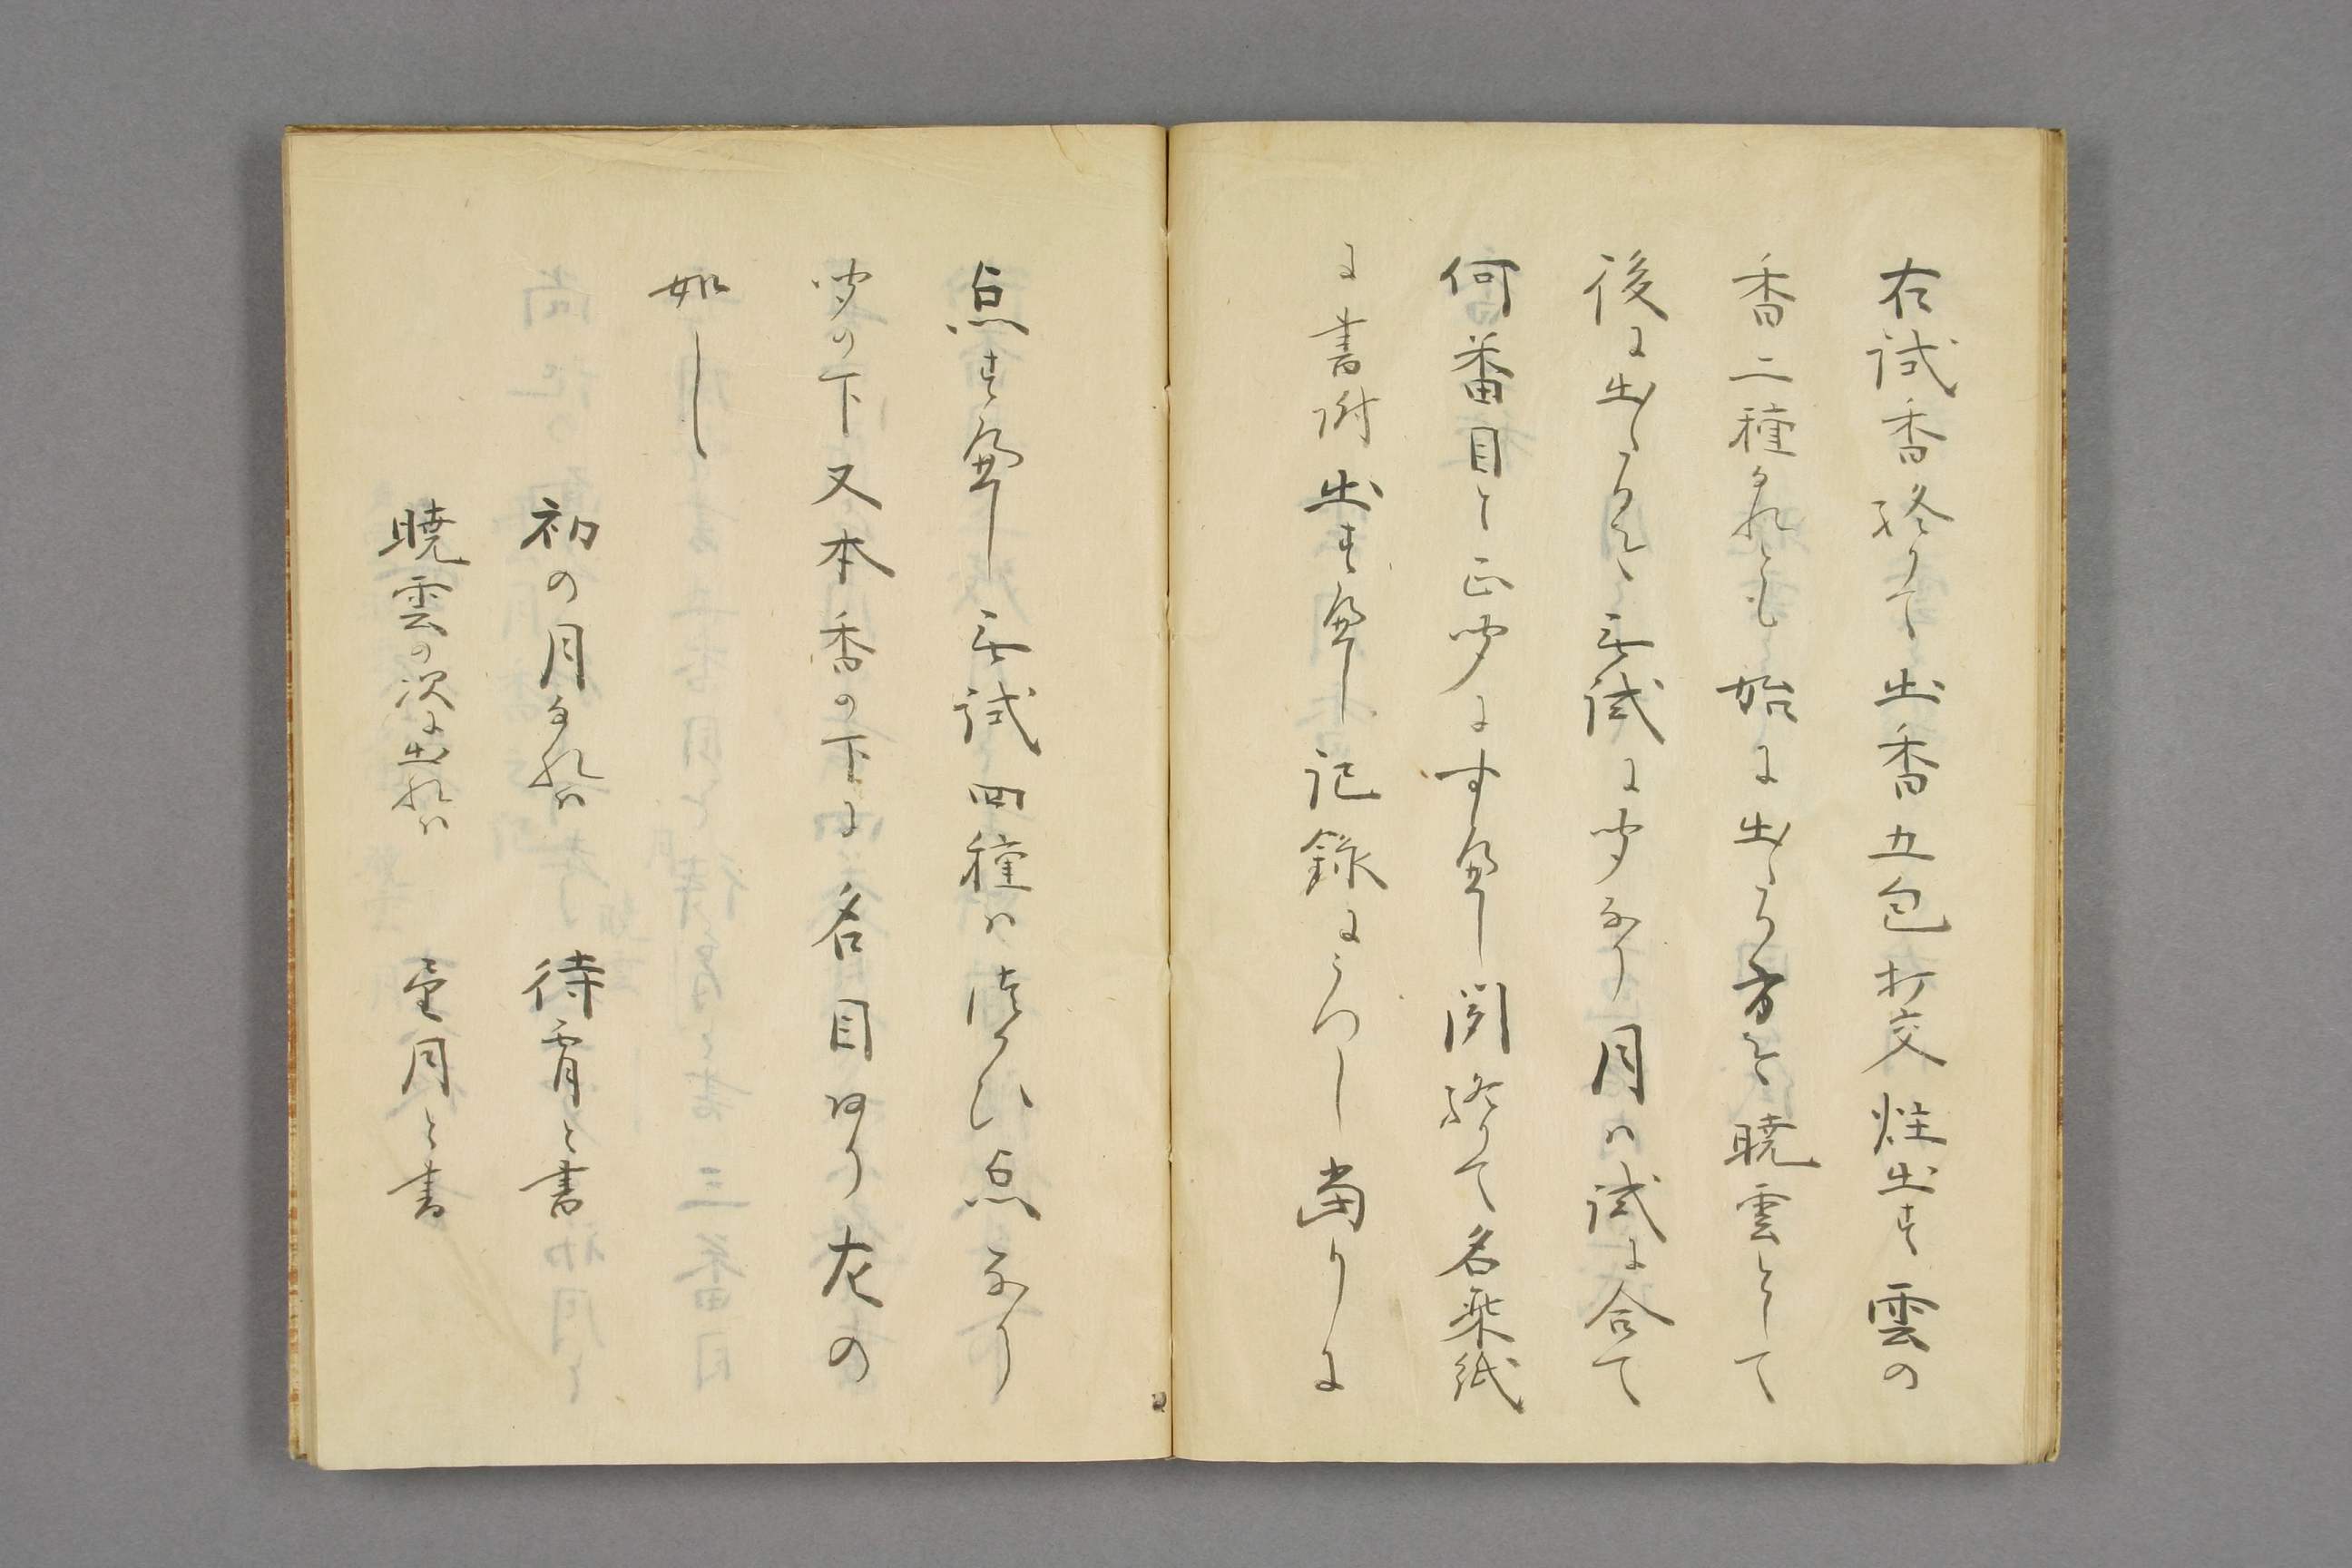 右試香終りて出香五包打交炷出す雲の
香二種なれとも始に出たる方を暁雲として
後に出たるを無試に聞なり月は試に合て
何番目と正聞にす可し聞終て名乗紙
に書附出す可し記録にうつし当りに
点す可し無試四種は結ひ点なり
聞の下又本香の下に名目あり左の
如し
初の月なれは 待宵と書
暁雲の次に出れは 望月と書